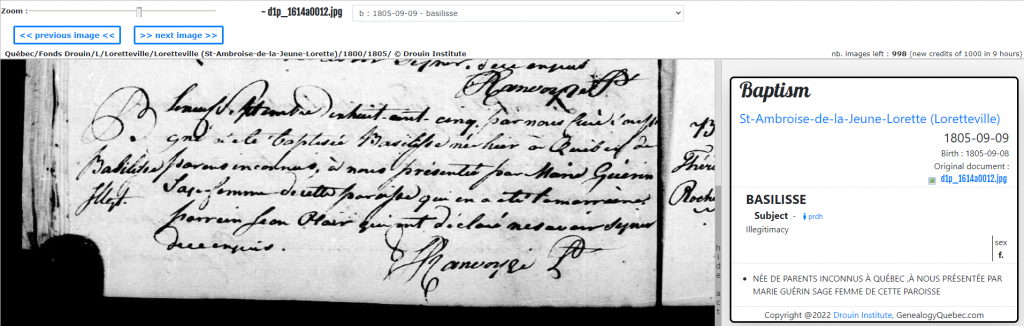 Zoom :
– d1p_1614a0012.jpg
b : 1805-09-09 - basilisse
<< previous image <<
>> next image >>
Québec/Fonds Drouin/L/Loretteville/Loretteville (St-Ambroise-de-la-Jeune-Lorette)/1800/1805/ © Drouin Institute
nb. images left : 998 (new credits of 1000 in 9 hours)
Le neuf Septembre mil huit cent cinq, par nous Curé
gné a été baptisée Basilisse née hier à Québec de
Basilisse
Illegt.
parens inconnus, à nous présentée par Marie Guérin
Sage-femme de cette paroisse qui en a été la marraine
parrain Jean qui ont déclaré ne savoir signer
de ce enquis.
Ranvoyzé Ptr
Baptism
St-Ambroise-de-la-Jeune-Lorette (Loretteville)
1805-09-09
Birth : 1805-09-08
Original document :
d1p_1614a0012.jpg
BASILISSE
Subject - prdh
Illegitimacy
sex
f.
• NÉE DE PARENTS INCONNUS À QUÉBEC ,À NOUS PRÉSENTÉE PAR
MARIE GUÉRIN SAGE FEMME DE CETTE PAROISSE
Copyright @2022 Drouin Institute, GenealogyQuebec.com